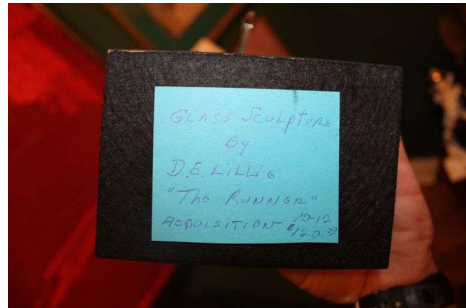 GLASS SCULPTURE
By
D.E. LiLLiE
"THE RUNNER"
ACQUISITION 10-12
$160.00